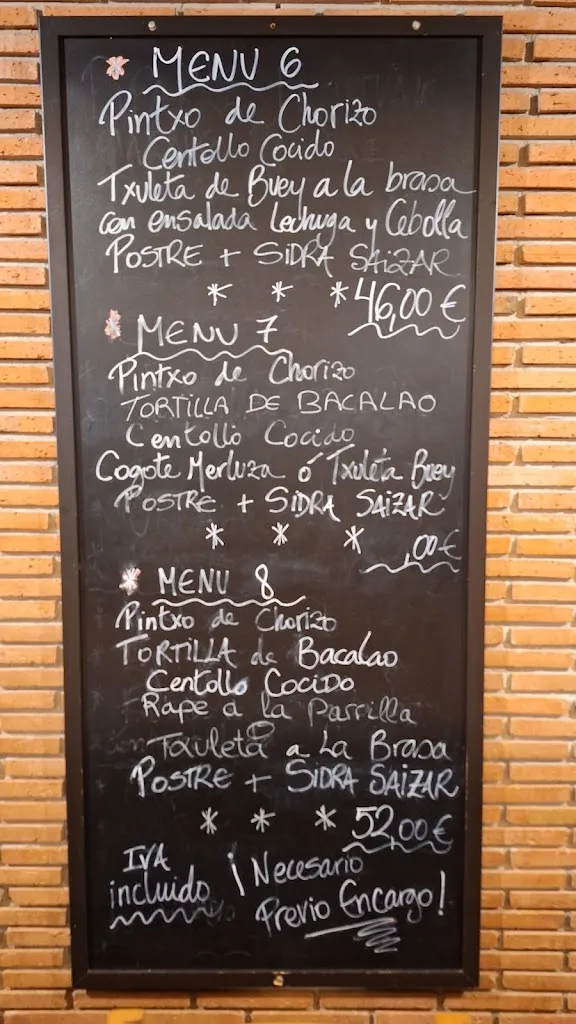 * MENU 6
Pintxo de Chorizo
Centollo Cocido
Txuleta de Buey a la brasa
con ensalada Lechuga y Cebolla
POSTRE + SiDRA SAiZAR
* * * 46,00 €
* MENU 7
Pintxo de Chorizo
TORTILLA DE BACALAO
Centollo Cocido
Cogote Merluza ó Txuleta Buey
POSTRE + SiDRA SAiZAR
* * * ,00 €
* MENU 8
Pintxo de Chorizo
TORTiLLA de Bacalao
Centollo COCiDO
Rape a la Parrilla
Txuleta a La Brasa
POSTRE + SiDRA SAiZAR
* * * 52,00 €
IVA
incluido
¡Necesario
Previo Encargo!